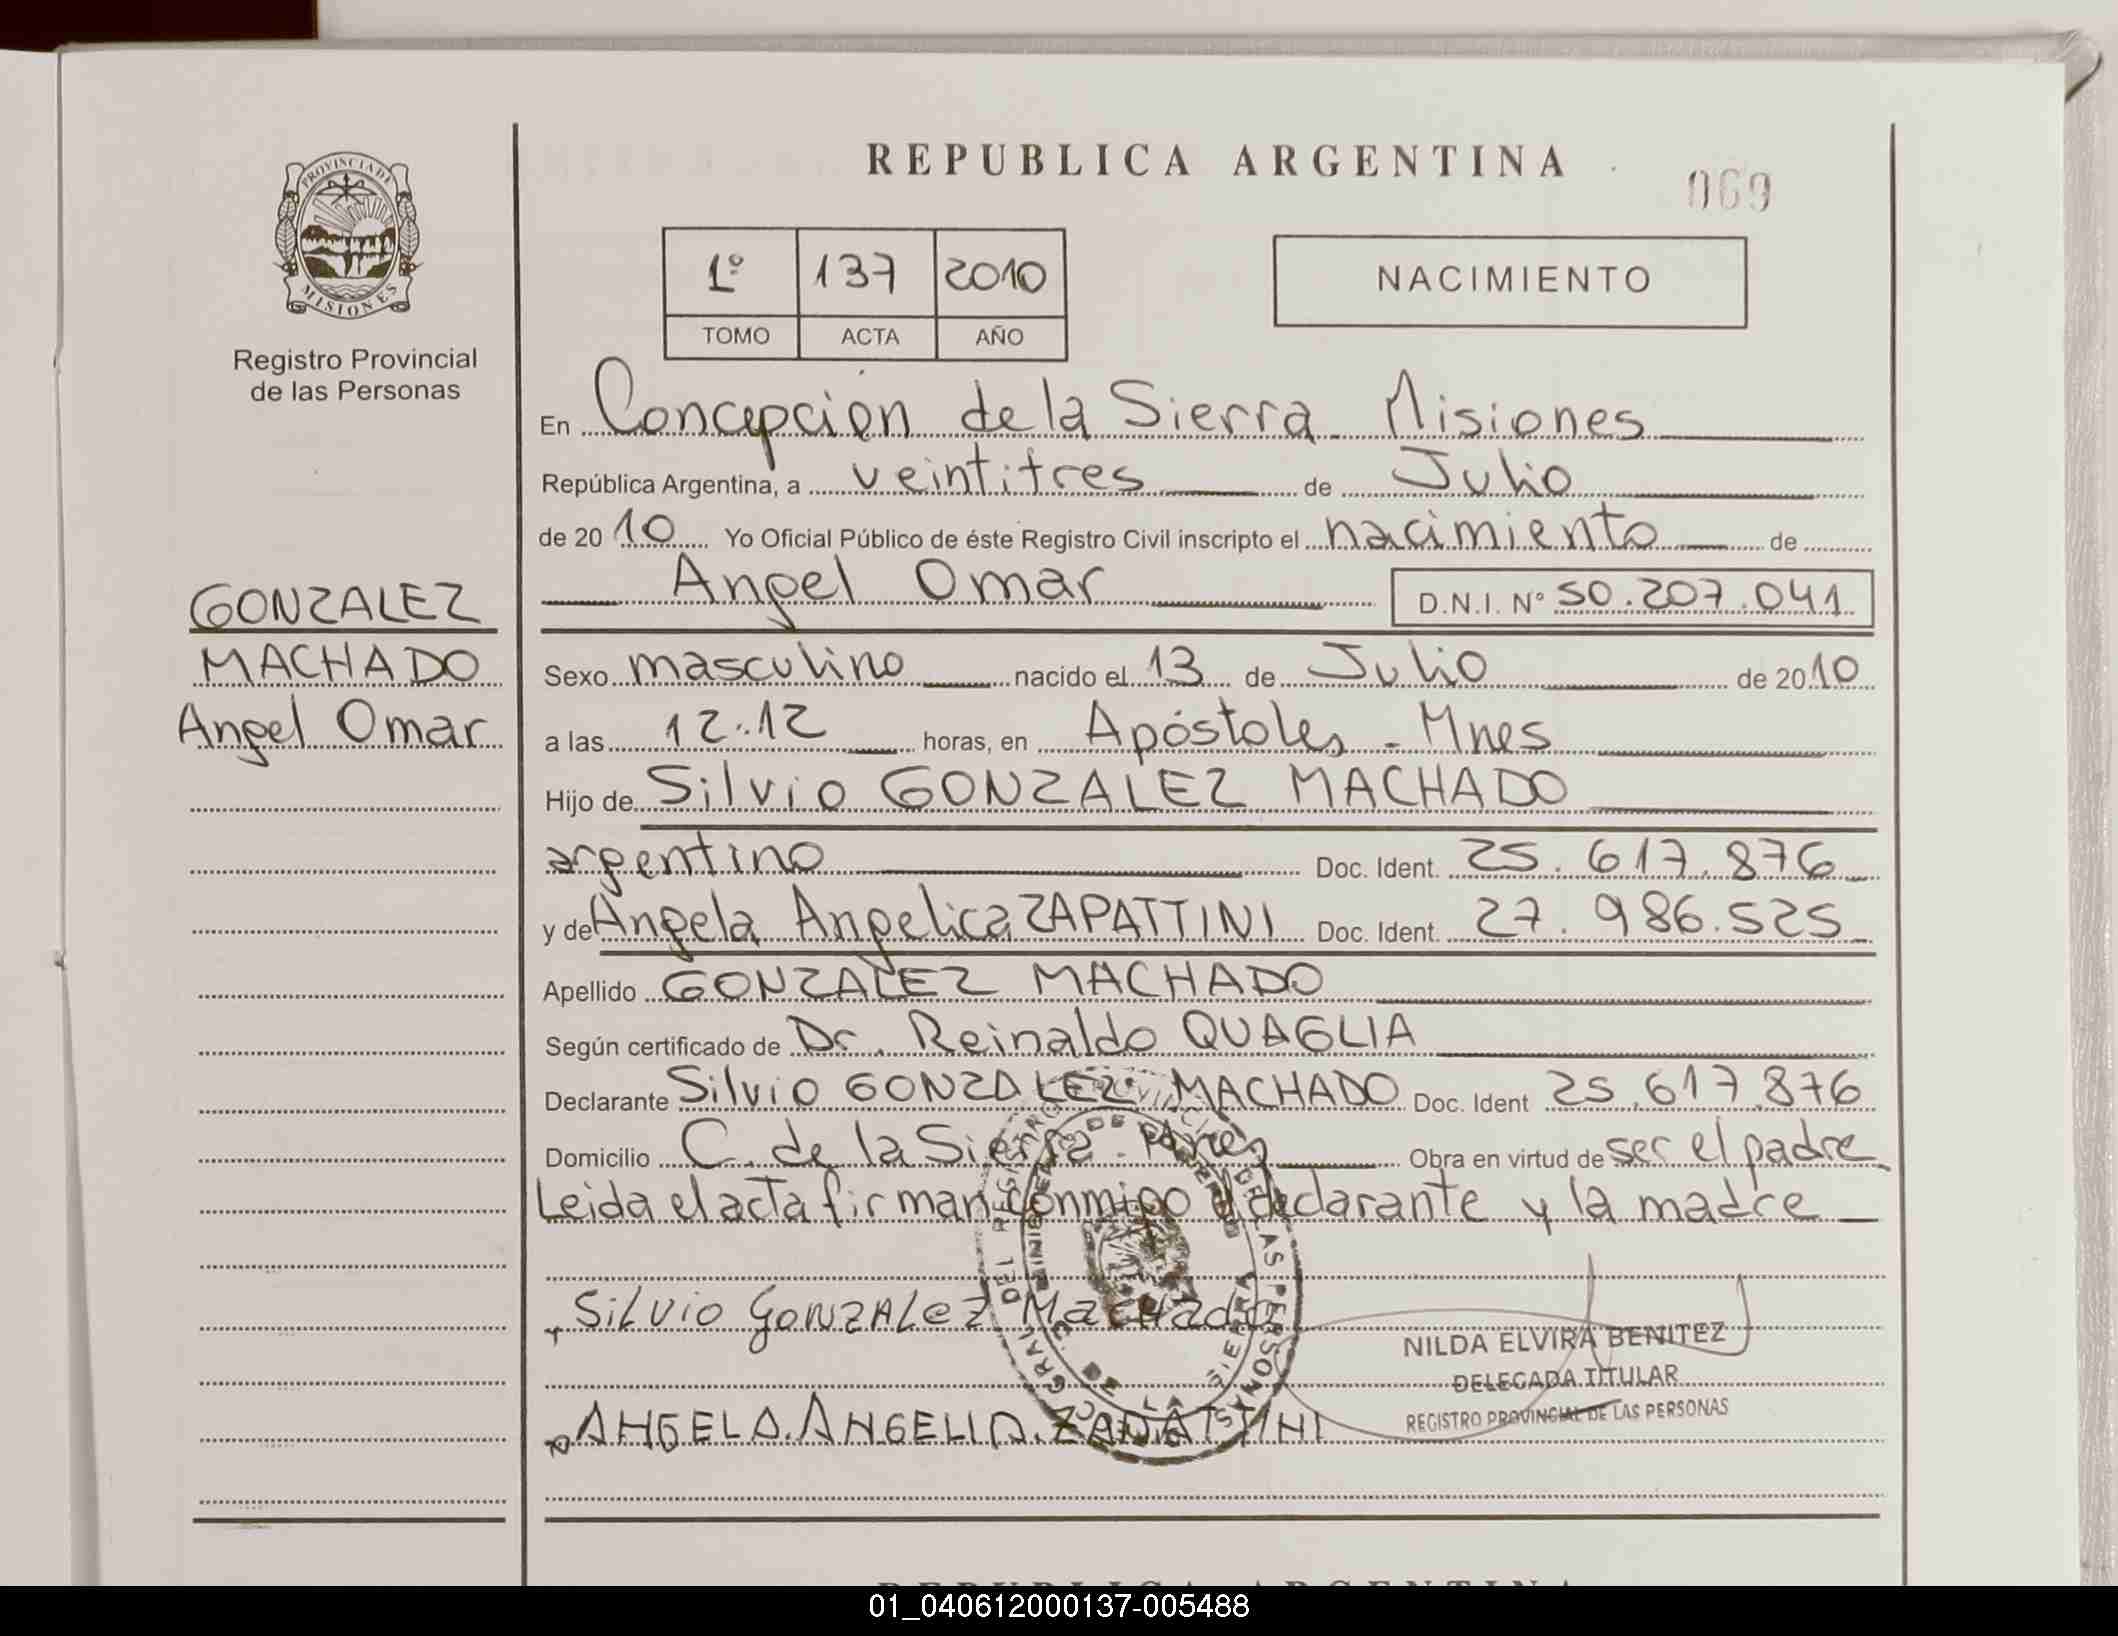 REPUBLICA ARGENTINA
069
PROVINCIA DE
MISIONES
Registro Provincial
de las Personas
1º 137 2010
TOMO ACTA AÑO
NACIMIENTO
En Concepción de la Sierra - Misiones
República Argentina, a veintitres de Julio
de 2010 Yo Oficial Público de éste Registro Civil inscripto el nacimiento de
Angel Omar D.N.I. Nº 50.207.041
GONZALEZ
MACHADO
Angel Omar
Sexo masculino nacido el 13 de Julio de 2010
a las 12:12 horas, en Apóstoles - Mnes
Hijo de Silvio GONZALEZ MACHADO
argentino Doc. Ident. 25.617.876
y de Angela Angelica ZAPATTINI Doc. Ident. 27.986.525
Apellido GONZALEZ MACHADO
Según certificado de Dr. Reinaldo QUAGLIA
Declarante Silvio GONZALEZ MACHADO Doc. Ident 25.617.876
Domicilio C. de la Sierra - Mnes Obra en virtud de ser el padre
Leida el acta firman conmigo el declarante y la madre
Silvio Gonzalez Machado
NILDA ELVIRA BENITEZ
DELEGADA TITULAR
REGISTRO PROVINCIAL DE LAS PERSONAS
ANGELA. ZAPATTINI
REPUBLICA ARGENTINA
01_040612000137-005488